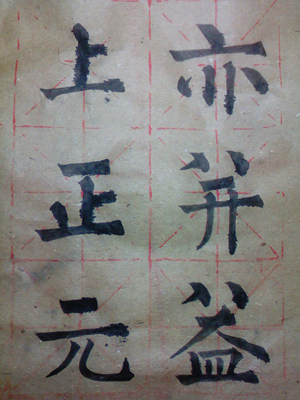 亦并益
上正元